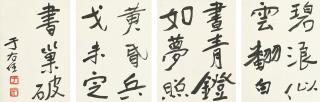 碧浪似
雲翻白
晝青鐙
如夢照
黃昏兵
戈未定
書巢破
于右任